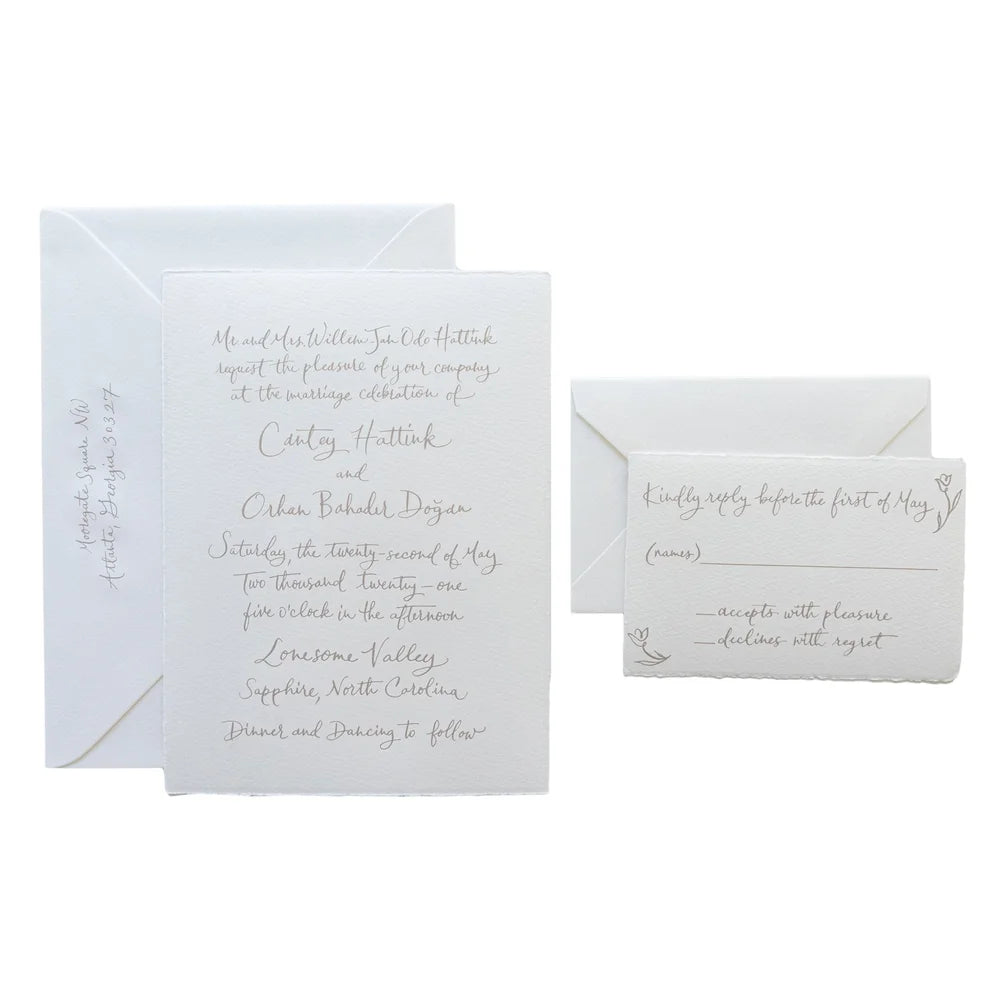 Mooregate Square NW
Atlanta, Georgia 30327
Mr and Mrs. Willem Jan Odo Hattink
request the pleasure of your company
at the marriage celebration of
Cantey Hattink
and
Orhan Bahadır Doğan
Saturday, the twenty-second of May
Two thousand twenty-one
five o'clock in the afternoon
Lonesome Valley
Sapphire, North Carolina
Dinner and Dancing to follow
Kindly reply before the first of May
(names)
accepts with pleasure
declines with regret